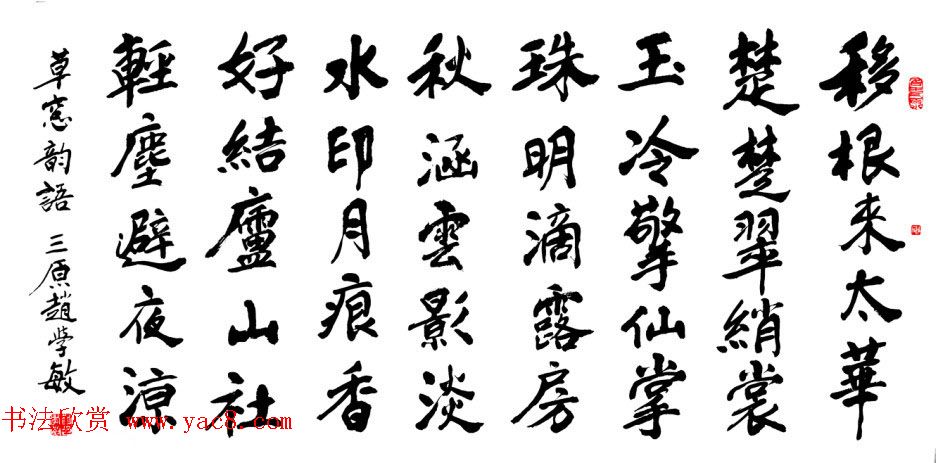 移根来太華
楚楚翠綃裳
玉冷擎仙掌
珠明滴露房
秋涵雲影淡
水印月痕香
好結廬山社
輕塵避夜涼
草窓韵語 三原趙学敏
书法欣赏 www.yac8.com